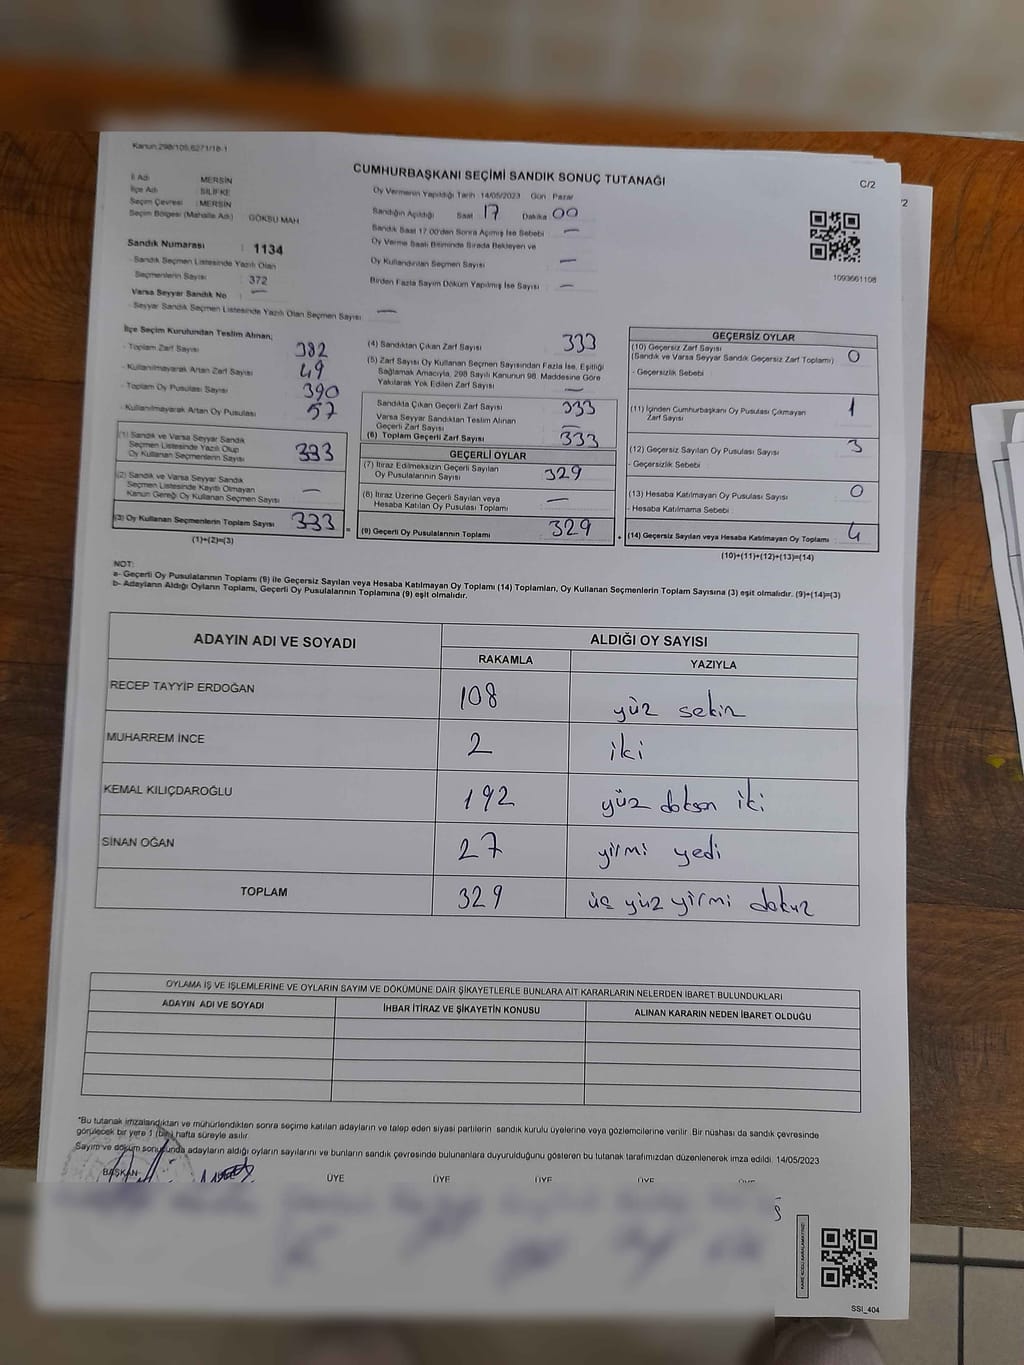 Kanun:298/105,6271/18-1
CUMHURBAŞKANI SEÇİMİ SANDIK SONUÇ TUTANAĞI
C/2
İl Adı MERSİN
İlçe Adı SİLİFKE
Seçim Çevresi : MERSİN
Seçim Bölgesi (Mahalle Adı) GÖKSU MAH
Sandık Numarası : 1134
- Sandık Seçmen Listesinde Yazılı Olan
Seçmenlerin Sayısı : 372
Varsa Seyyar Sandık No : —
- Seyyar Sandık Seçmen Listesinde Yazılı Olan Seçmen Sayısı —
Oy Vermenin Yapıldığı Tarih 14/05/2023 Gün Pazar
Sandığın Açıldığı Saat 17 Dakika 00
Sandık Saat 17.00'den Sonra Açılmış İse Sebebi —
Oy Verme Saati Bitiminde Sırada Bekleyen ve
Oy Kullandırılan Seçmen Sayısı —
Birden Fazla Sayım Döküm Yapılmış İse Sayısı —
1093661108
/2
İlçe Seçim Kurulundan Teslim Alınan;
- Toplam Zarf Sayısı 382
- Kullanılmayarak Artan Zarf Sayısı 49
- Toplam Oy Pusulası Sayısı 390
- Kullanılmayarak Artan Oy Pusulası 57
(1) Sandık ve Varsa Seyyar Sandık
Seçmen Listesinde Yazılı Olup
Oy Kullanan Seçmenlerin Sayısı 333
(2) Sandık ve Varsa Seyyar Sandık
Seçmen Listesinde Kayıtlı Olmayan
Kanun Gereği Oy Kullanan Seçmen Sayısı —
(3) Oy Kullanan Seçmenlerin Toplam Sayısı 333 =
(1)+(2)=(3)
(4) Sandıktan Çıkan Zarf Sayısı 333
(5) Zarf Sayısı Oy Kullanan Seçmen Sayısından Fazla İse, Eşitliği
Sağlamak Amacıyla, 298 Sayılı Kanunun 98. Maddesine Göre
Yakılarak Yok Edilen Zarf Sayısı —
Sandıkta Çıkan Geçerli Zarf Sayısı 333
Varsa Seyyar Sandıktan Teslim Alınan
Geçerli Zarf Sayısı —
(6) Toplam Geçerli Zarf Sayısı 333
GEÇERLİ OYLAR
(7) İtiraz Edilmeksizin Geçerli Sayılan
Oy Pusulalarının Sayısı 329
(8) İtiraz Üzerine Geçerli Sayılan veya
Hesaba Katılan Oy Pusulası Toplamı —
(9) Geçerli Oy Pusulalarının Toplamı 329 +
GEÇERSİZ OYLAR
(10) Geçersiz Zarf Sayısı 0
(Sandık ve Varsa Seyyar Sandık Geçersiz Zarf Toplamı)
- Geçersizlik Sebebi
(11) İçinden Cumhurbaşkanı Oy Pusulası Çıkmayan
Zarf Sayısı 1
(12) Geçersiz Sayılan Oy Pusulası Sayısı 3
- Geçersizlik Sebebi
(13) Hesaba Katılmayan Oy Pusulası Sayısı 0
- Hesaba Katılmama Sebebi
(14) Geçersiz Sayılan veya Hesaba Katılmayan Oy Toplamı 4
(10)+(11)+(12)+(13)=(14)
NOT:
a- Geçerli Oy Pusulalarının Toplamı (9) ile Geçersiz Sayılan veya Hesaba Katılmayan Oy Toplamı (14) Toplamları, Oy Kullanan Seçmenlerin Toplam Sayısına (3) eşit olmalıdır. (9)+(14)=(3)
b- Adayların Aldığı Oyların Toplamı, Geçerli Oy Pusulalarının Toplamına (9) eşit olmalıdır.
ADAYIN ADI VE SOYADI ALDIĞI OY SAYISI
RAKAMLA YAZIYLA
RECEP TAYYİP ERDOĞAN 108 yüz sekiz
MUHARREM İNCE 2 iki
KEMAL KILIÇDAROĞLU 192 yüz doksan iki
SİNAN OĞAN 27 yirmi yedi
TOPLAM 329 üç yüz yirmi dokuz
OYLAMA İŞ VE İŞLEMLERİNE VE OYLARIN SAYIM VE DÖKÜMÜNE DAİR ŞİKAYETLERLE BUNLARA AİT KARARLARIN NELERDEN İBARET BULUNDUKLARI
ADAYIN ADI VE SOYADI İHBAR İTİRAZ VE ŞİKAYETİN KONUSU ALINAN KARARIN NEDEN İBARET OLDUĞU
*Bu tutanak imzalandıktan ve mühürlendikten sonra seçime katılan adayların ve talep eden siyasi partilerin sandık kurulu üyelerine veya gözlemcilerine verilir. Bir nüshası da sandık çevresinde
görülecek bir yere 1 (bir) hafta süreyle asılır.
Sayım ve döküm sonucunda adayların aldığı oyların sayılarını ve bunların sandık çevresinde bulunanlara duyurulduğunu gösteren bu tutanak tarafımızdan düzenlenerek imza edildi. 14/05/2023
BAŞKAN ÜYE ÜYE ÜYE ÜYE ÜYE
SSI_404